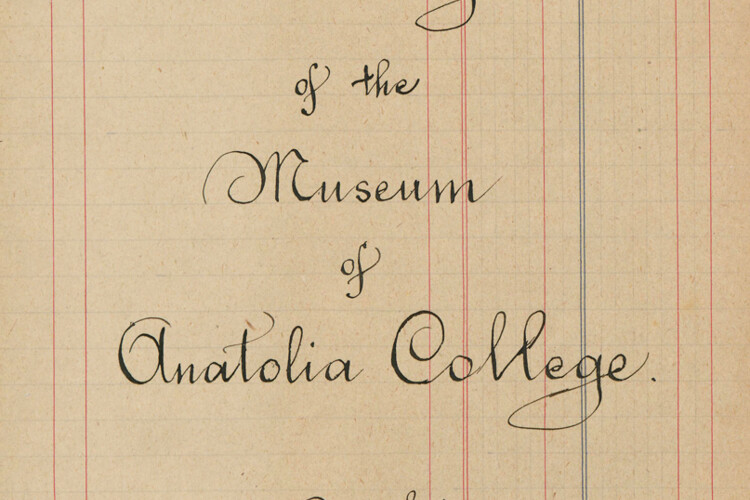 of the
Museum
of
Anatolia College.